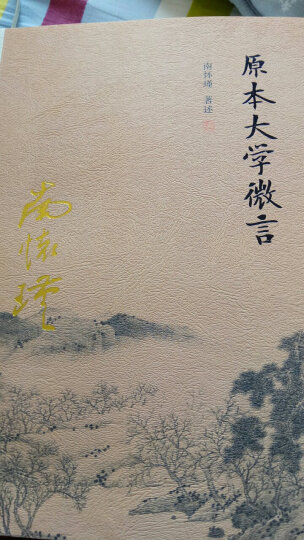 原本大学微言
南怀瑾 著述
南懷瑾